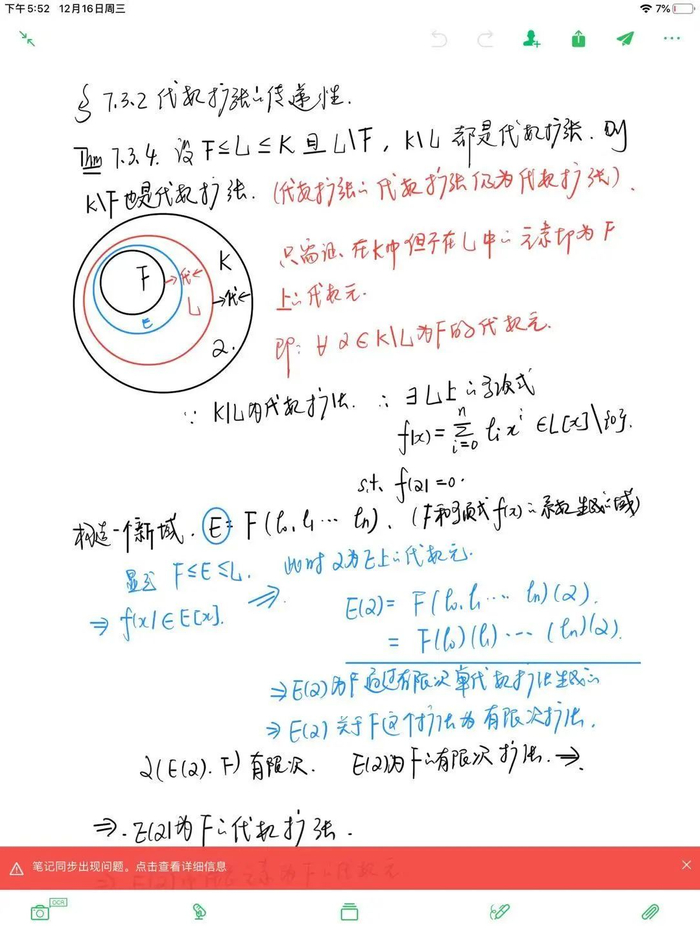 下午5:52 12月16日周三
7%
§ 7.3.2 代数扩张的传递性.
Thm 7.3.4. 设 F≤L≤K 且 L\F, K\L 都是代数扩张. 则
K\F也是代数扩张. (代数扩张的代数扩张仍为代数扩张).
F 代 K
L 代
E
α.
只需证, 在K中但不在L中的元素却为F
上的代数元.
即: ∀ α∈K\L为F的代数元.
∵ K\L为代数扩张. ∴ ∃ L上的多项式
f(x)=∑ⁿᵢ₌₀ lᵢxⁱ ∈L[x]\{0}.
s.t. f(α)=0.
构造一个新域. E= F(l₀.l₁⋯ lₙ). (F和多项式f(x)的系数生成的域)
显然 F≤E≤L. 此时α为E上的代数元.
⇒ f(x)∈E[x]. ⇒
E(α)= F(l₀.l₁⋯ lₙ)(α).
= F(l₀)(l₁)⋯ (lₙ)(α).
⇒E(α)为F通过有限次单代数扩张生成的
⇒ E(α)关于F这个扩张为有限次扩张.
α(E(α). F) 有限次. E(α)为F的有限次扩张.⇒.
⇒. E(α)为F的代数扩张.
笔记同步出现问题。点击查看详细信息
OCR